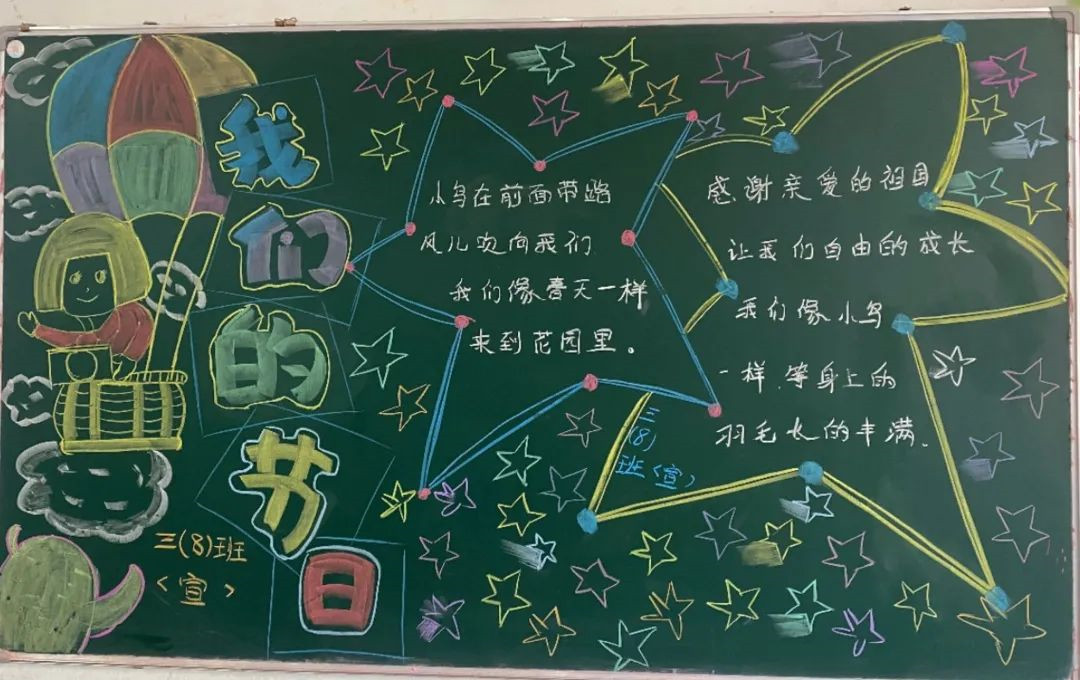 我们的节日
小鸟在前面带路
风儿吹向我们
我们像春天一样
来到花园里。
感谢亲爱的祖国
让我们自由的成长
我们像小鸟
一样,等身上的
羽毛长的丰满。
三(8)
班<宣>
三(8)班
<宣>